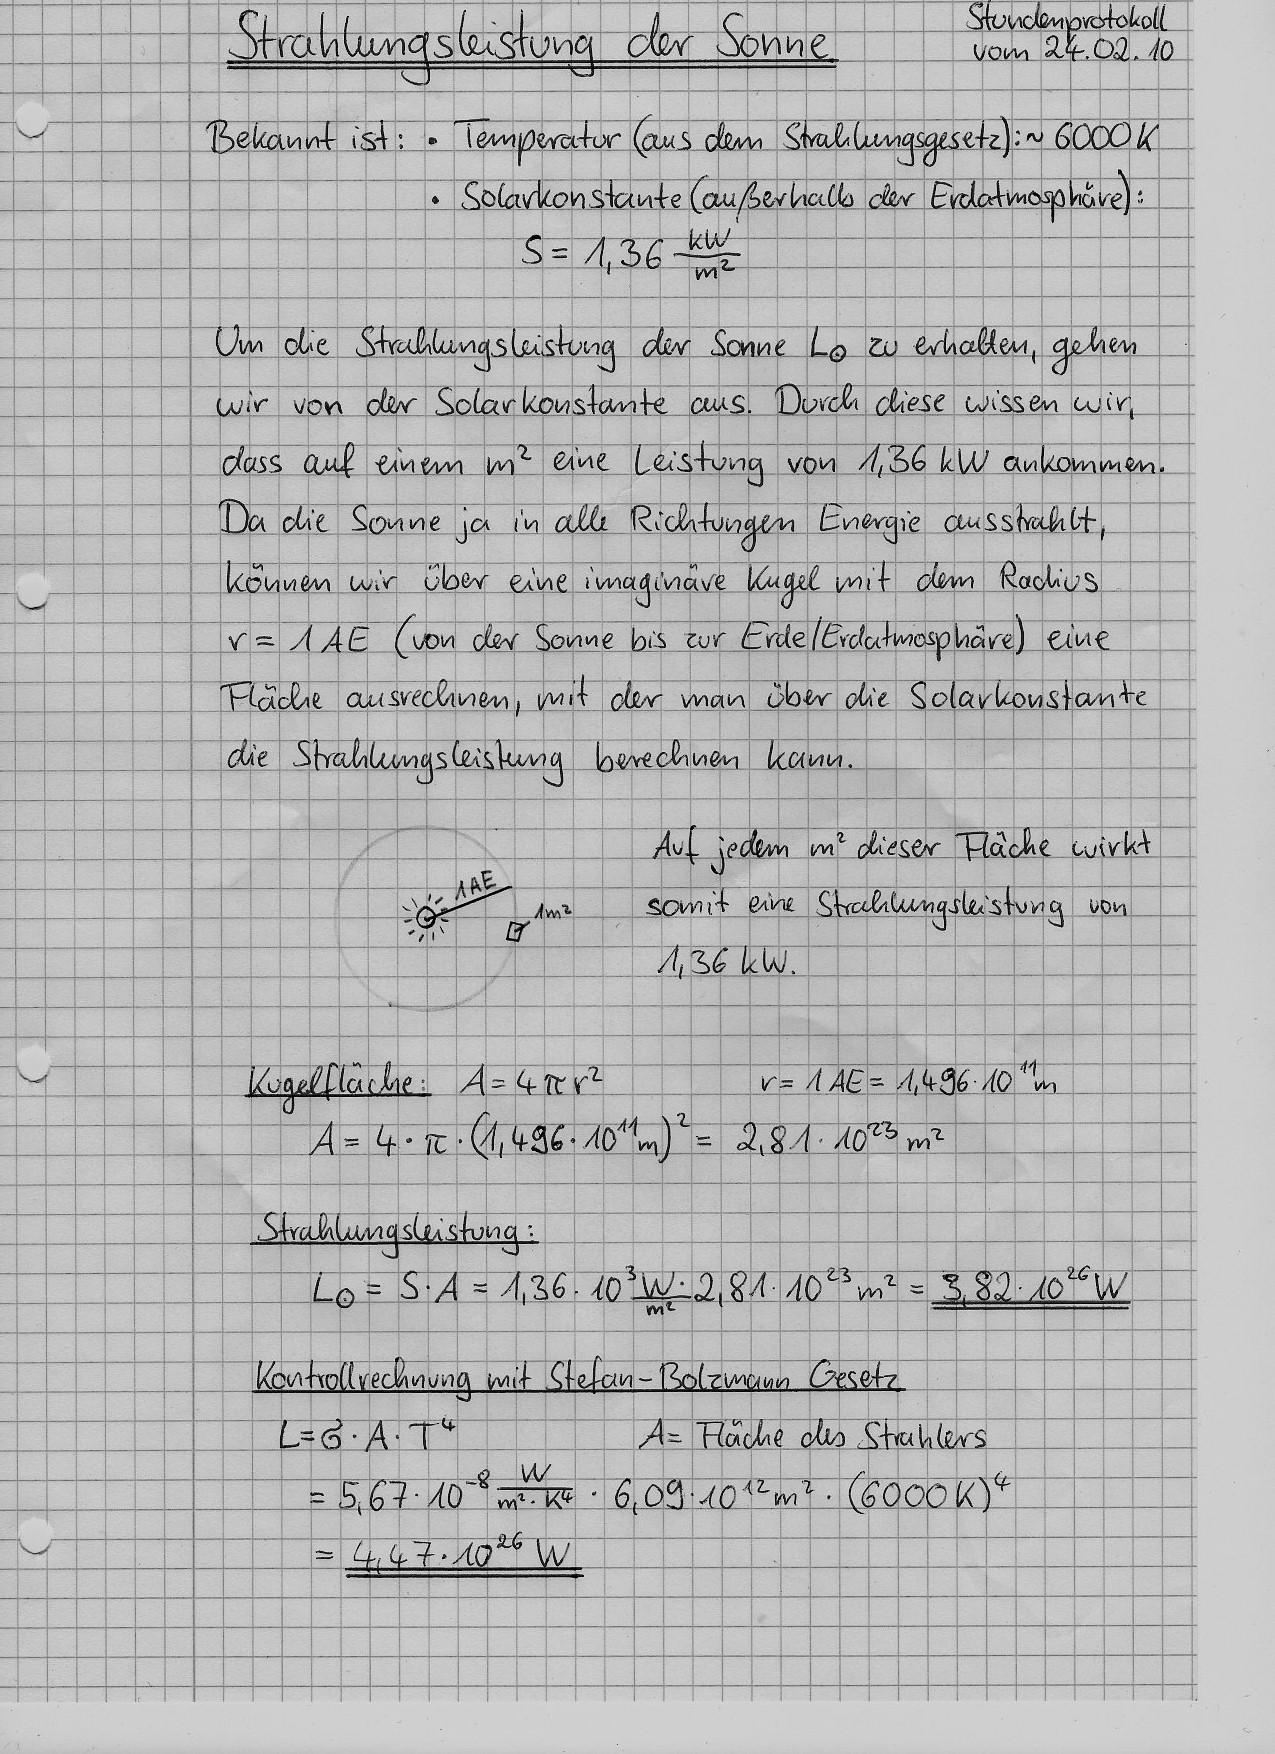 Strahlungsleistung der Sonne
Stundenprotokoll
vom 24.02.10
Bekannt ist: • Temperatur (aus dem Strahlungsgesetz): ~ 6000 K
• Solarkonstante (außerhalb der Erdatmosphäre):
S = 1,36 kW/m²
Um die Strahlungsleistung der Sonne L⊙ zu erhalten, gehen
wir von der Solarkonstante aus. Durch diese wissen wir,
dass auf einem m² eine Leistung von 1,36 kW ankommen.
Da die Sonne ja in alle Richtungen Energie ausstrahlt,
können wir über eine imaginäre Kugel mit dem Radius
r = 1 AE (von der Sonne bis zur Erde/Erdatmosphäre) eine
Fläche ausrechnen, mit der man über die Solarkonstante
die Strahlungsleistung berechnen kann.
1AE
1m²
Auf jedem m² dieser Fläche wirkt
somit eine Strahlungsleistung von
1,36 kW.
Kugelfläche: A = 4πr² r = 1 AE = 1,496·10¹¹m
A = 4·π·(1,496·10¹¹m)² = 2,81·10²³ m²
Strahlungsleistung:
L⊙ = S·A = 1,36·10³ W/m² · 2,81·10²³ m² = 3,82·10²⁶ W
Kontrollrechnung mit Stefan-Bolzmann Gesetz
L = σ·A·T⁴ A = Fläche des Strahlers
= 5,67·10⁻⁸ W/m²·K⁴ · 6,09·10¹² m² · (6000 K)⁴
= 4,47·10²⁶ W